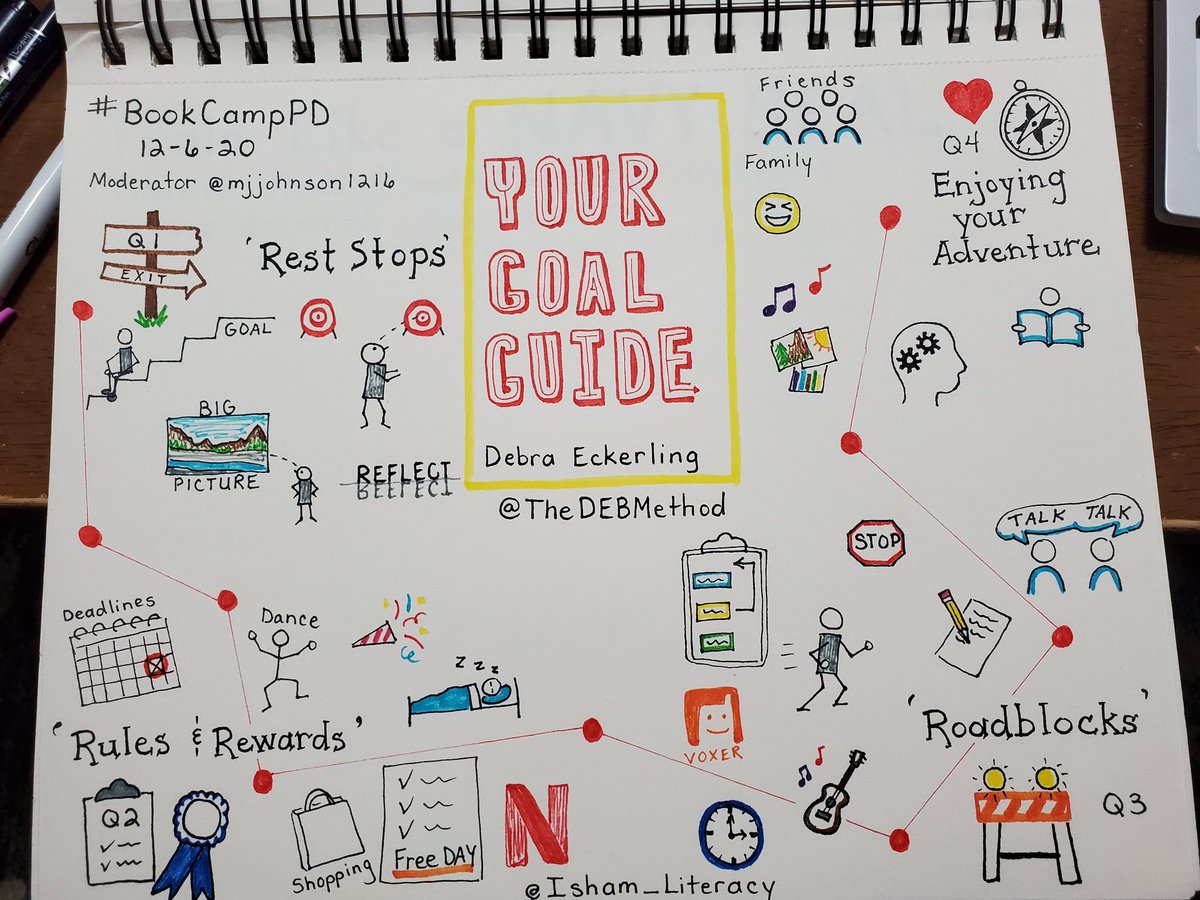 #BookCampPD
12-6-20
Moderator @mjjohnson1216
Q1
EXIT
'Rest Stops'
GOAL
BIG
PICTURE
REFLECT
REFLECT
YOUR
GOAL
GUIDE
Debra Eckerling
@TheDEBMethod
Friends
Family
Q4
Enjoying
your
Adventure
TALK TALK
STOP
'Roadblocks'
Q3
VOXER
Deadlines
Dance
z z z
'Rules & Rewards'
Q2
Shopping
Free DAY
N
@Isham_Literacy